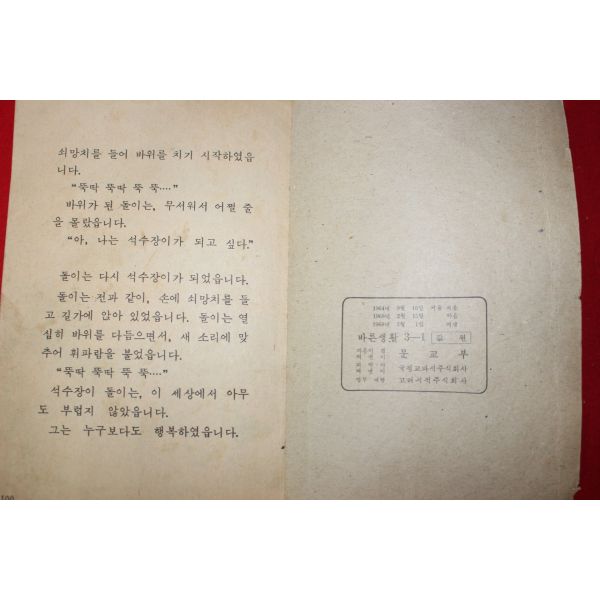 쇠망치를 들어 바위를 치기 시작하였읍
니다.
"뚝딱 뚝딱 뚝 뚝…."
바위가 된 돌이는, 무서워서 어쩔 줄
을 몰랐읍니다.
"아, 나는 석수장이가 되고 싶다."
돌이는 다시 석수장이가 되었읍니다.
돌이는 전과 같이, 손에 쇠망치를 들
고 길가에 앉아 있었읍니다. 돌이는 열
심히 바위를 다듬으면서, 새 소리에 맞
추어 휘파람을 불었읍니다.
"뚝딱 뚝딱 뚝 뚝…."
석수장이 돌이는, 이 세상에서 아무
도 부럽지 않았읍니다.
그는 누구보다도 행복하였읍니다.
100
1964년
바른생활 3—1 값 원
문교부
국정교과서주식회사
고려서적주식회사